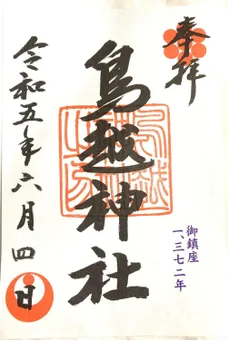 奉拝
鳥越神社
御鎮座
一、三七二年
令和五年六月四日